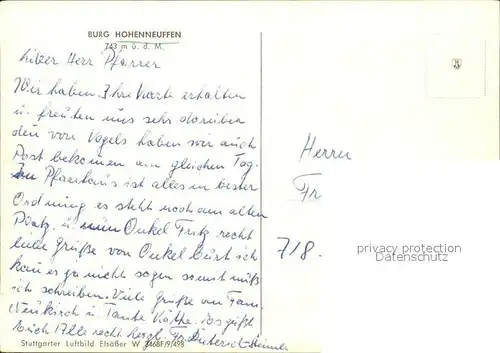 BURG HOHENNEUFFEN
743 m ü. d. M.
Lieber Herr Pfarrer
Wir haben Ihre Karte erhalten
u. freuten uns sehr darüber
den von Vogels haben wir auch
Post bekommen am gleichen Tag.
Im Pfarrhaus ist alles in bester
Ordnung es steht noch am alten
Platz. u. nun Onkel Fritz recht
liebe Grüße von Onkel ich
kan es ja nicht sagen somst muß
ich schreiben. Viele Grüße an Fam.
Neukirch u. Tante Käthe. Es grüßt
Euch Alle recht herzl. Fr.
Stuttgarter Luftbild Elsäßer W 8468F/9/498
Herrn
Fr
718.
privacy protection
Datenschutz